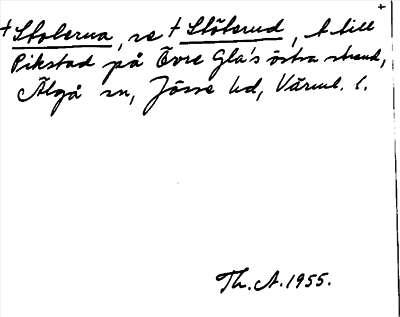 +
+Stolerna, se +Stölerud, t till
Pikstad på Övre Gla's östra strand,
Älgå sn, Jösse hd, Värml. l.
Th. A. 1955.